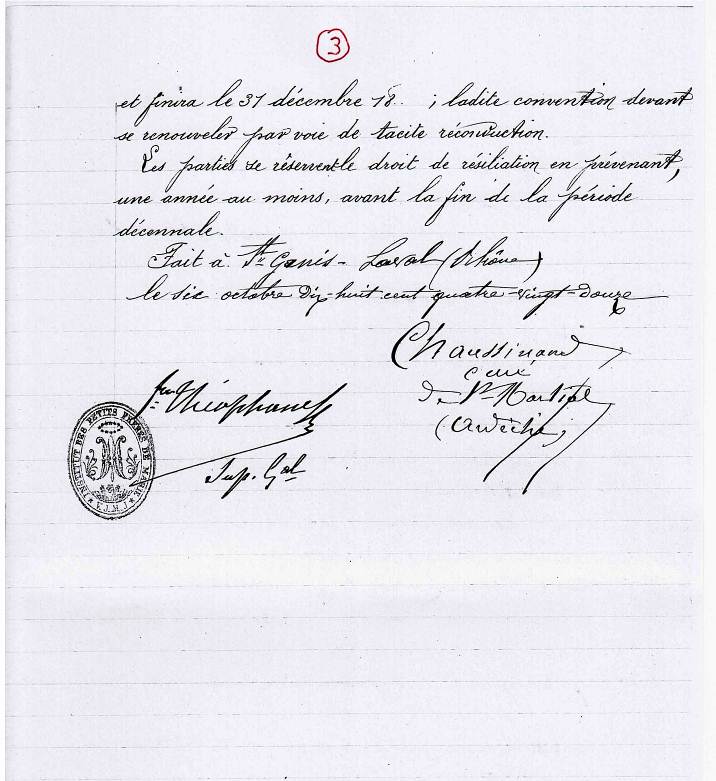 3
et finira le 31 décembre 18.. ; ladite convention devant
se renouveler par voie de tacite réconduction.
Les parties se réservent le droit de résiliation en prévenant,
une année au moins, avant la fin de la période
décennale.
Fait à St Genis-Laval (Rhône)
le six octobre Dix-huit cent quatre-vingt-douze
Chaussinand
curé
de St Martial
(Ardèche)
Théophane
Sup. Gal
INSTITUT DES PETITS FRÈRES DE MARIE
V.J.M.J